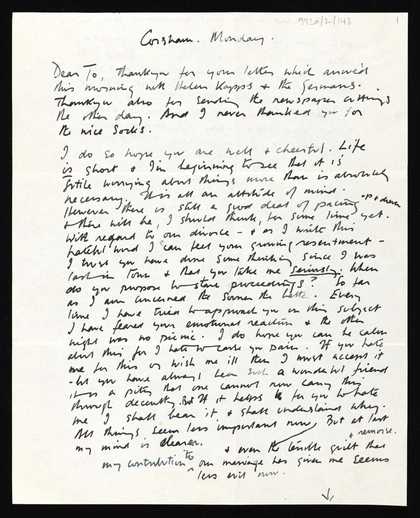 9420/2/143
1
Corsham. Monday.
Dear To, Thankyou for your letter which arrived
this morning with Helen Kapps & the Germans.
Thankyou also for sending the newspaper cuttings
the other day. And I never thanked you for
the nice socks.
I do so hope you are well & cheerful. Life
is short & I'm beginning to see that it is
futile worrying about things more than is absolutely
necessary. It is all an attitude of mind.
However there is still a good deal of pacing up & down
& there will be, I should think, for some time yet.
With regard to our divorce - & as I write this
hateful word I can feel your growing resentment -
I trust you have done some thinking since I was
last in Town & that you take me seriously. When
do you propose to start proceedings? So far
as I am concerned the sooner the better. Every
time I have tried to approach you on this subject
I have feared your emotional reaction & the other
night was no picnic. I do hope you can be calm
about this for I hate to cause you pain. If you hate
me for this or wish me ill then I must accept it
- but you have always been such a wonderful friend
it is a pity that one cannot now carry this
through decently. But if it helps for you to hate
me I shall bear it & shall understand why.
All things seem less important now, But at last
my mind is clearer. & even the terrible guilt & remorse that
my contribution to our marriage has given me seems
less evil now.